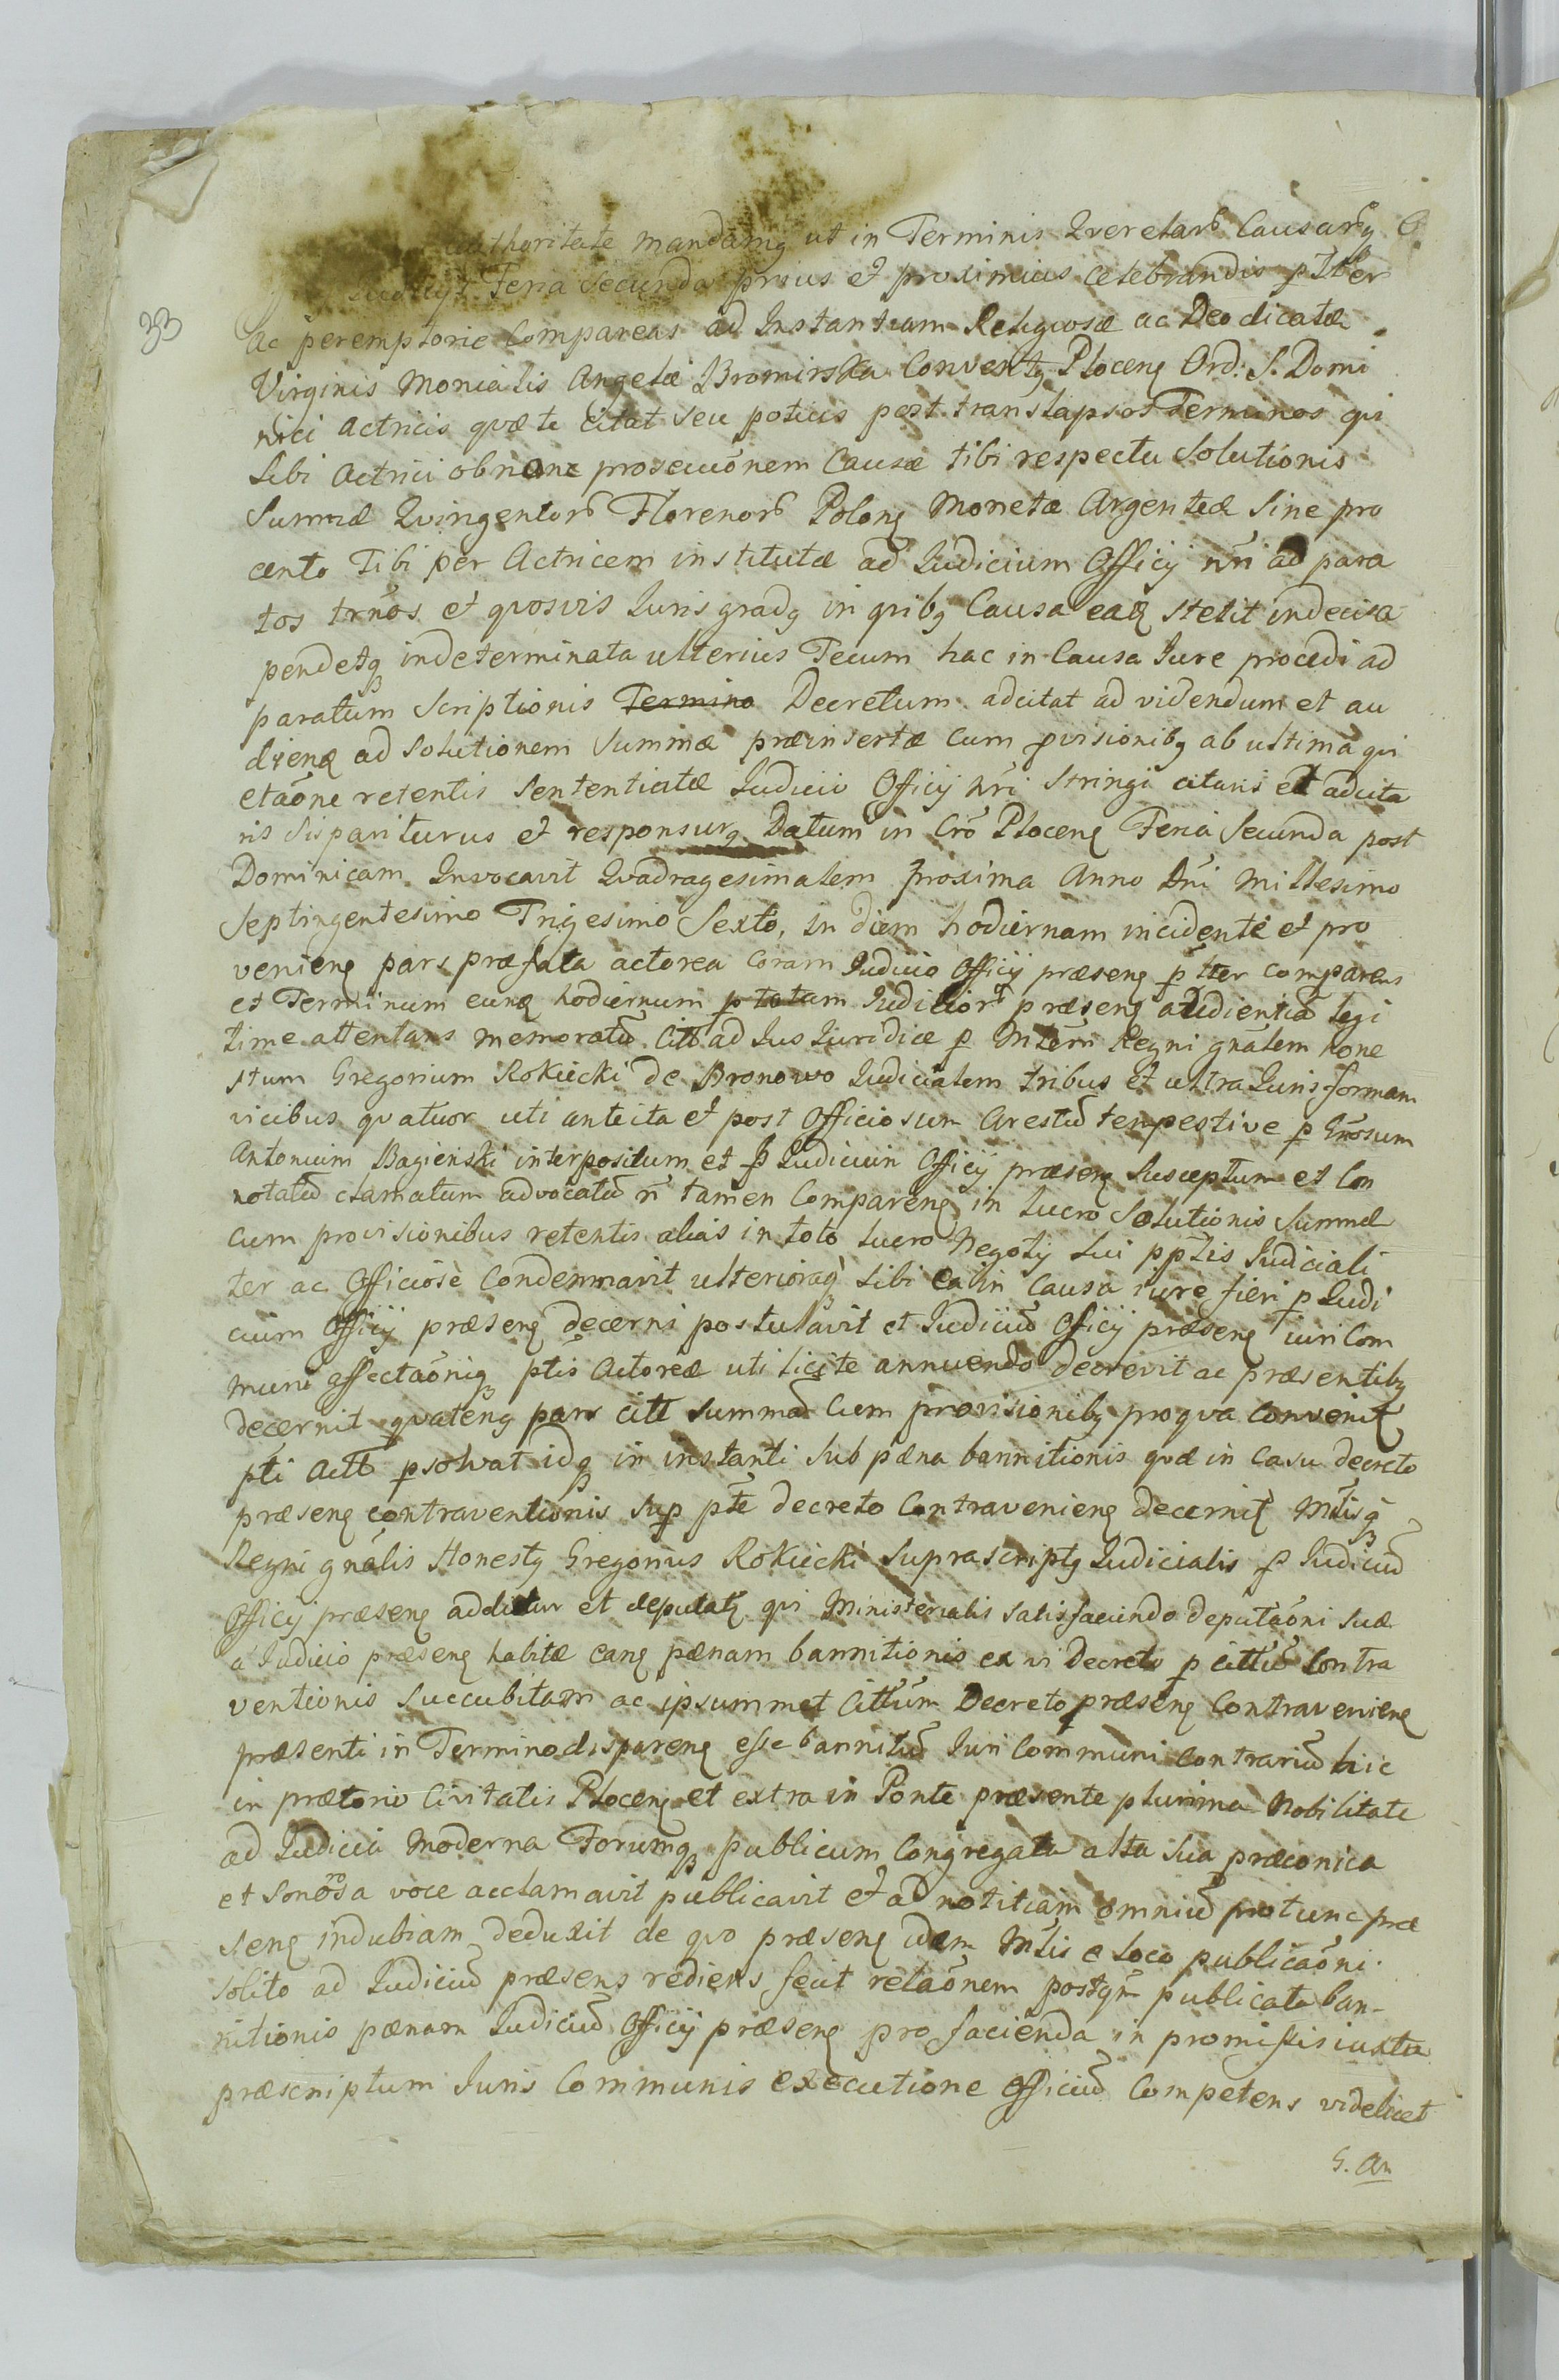 authoritate mandamq ut in Terminis Qverelarū Causarūq O
Feria Secunda prius et proximius celebrandis pltter
33
ac peremptorie Compareas ad Instantiam Religiosæ ac Deo dicatæ
Virginis Monialis Angelæ Bromirska Conventq Plocenę Ord: S. Domi
nici Actricis qvæ te citat seu potius post translapsos Terminos qui
sibi Actrici ob nanc prosecuōnem Causæ tibi respectu Solutionis
Summæ Qvingentorū Florenorū Polonę Monetæ Argenteæ Sine pro
cento Tibi per Actricem institutæ ad Iudicium Officij nri ad para
tos trnos et qvosvis Iuris gradq in qvibq Causa eadę stetit indecisa
pendetq indeterminata ulterius Tecum hac in Causa Iure procedi ad
paratum Scriptionis Termino Decretum adcitat ad videndum et au
dienę ad Solutionem Summæ præinsertæ cum pvisionibq ab ultima qvi
etaōne retentis Sententiatæ Iudicio Officij nri Stringi citaris et adcita
ris Sis pariturus et responsurq Datum in Cro Plocenę Feria Secunda post
Dominicam Invocavit Qvadragesimalem proxima Anno Dni Millesimo
Septingentesimo Trigesimo Sexto, in diem hodiernam incidente et pro
venienę pars præfata actorea coram Iudicio Officij præsenę pltter comparens
et Terminum eunę hodiernum p totam Iudiciorū præsenę audientiā legi
time attentans memoratū Citt ad Ius Iuridice p Mltem Regni gnalem hone
stum Gregorium Rokicki de Bronowo Iudicialem tribus et ultra Iuris formam
vicibus qvatuor uti antecita et post Officiosum Arestū tempestive p Gnosum
Antonium Bagienski interpositum et p Iudicium Officij præsenę Susceptum et Con
notatū clamatum advocatū n tamen Comparenę in lucro Solutionis Summæ
Cum provisionibus retentis alias in toto lucro Negotij Sui pptis Iudiciali
ter ac Officiose Condemnavit ulterioraq Sibi ea in Causa iure fieri p Iudi
cium Officij præsenę decerni postulavit et Iudiciū Officij præsenę iuri Com
muni affectaōniq ptis Actoreæ uti licite annuendo decrevit ac præsentibq
decernit qvatenq pars citt Summā Cum provisionibq pro qva Convenitę
pti Actt psolvat idq in instanti Sub pæna bannitionis qvæ in Casu decreto
præsenę contraventionis Sup pte decreto Contravenienę decernitę Mltisq
Regni gnalis Honestq Gregorius Rokicki Suprascriptq Iudicialis p Iudiciū
Officij præsenę additur et deputatę qvi Ministerialis Satisfaciendo deputaōni Suæ
a Iudicio præsenę habitæ eanę pænam bannitionis ex vi Decreto p cittū Contra
ventionis Succubitam ac ipsummet Cittūm Decreto præsenę Contravenienę
præsenti in Termino disparenę esse bannitū Iuri Communi Contrariū hic
in prætorio Civitatis Plocenę et extra in Ponte præsente plurima Nobilitate
ad Iudicia Moderna Forumq publicum Congregata alta Sua præconica
et Sonora voce acclamavit publicavit et ad notitiam omniū protunc præ
senę indubiam deduxit de qvo præsenę idem Mltis e loco publicaōni
solito ad Iudiciū præsens rediens fecit relaōnem postqm publicata ban-
nitionis pænam Iudiciū Officij præsenę pro facienda in promissis iuxta
præscriptum Iuris Communis executione Officiū Competens videlicet
G. An